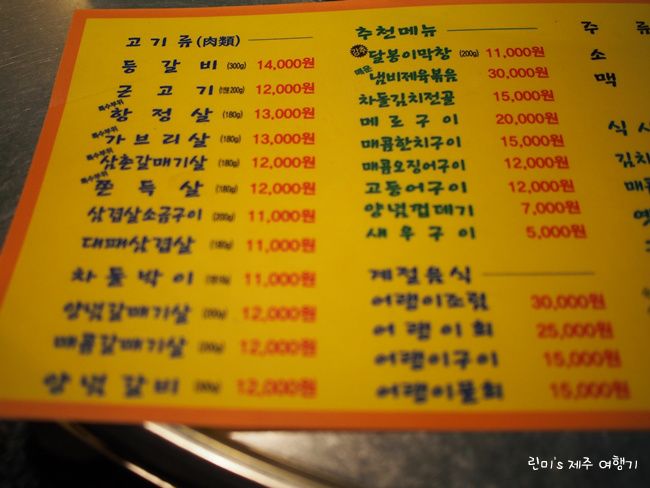 고기류(肉類)
등갈비 (300g) 14,000원
근고기 (1인분 200g) 12,000원
특수부위 항정살 (180g) 13,000원
특수부위 가브리살 (180g) 13,000원
특수부위 삼촌갈매기살 (180g) 12,000원
특수부위 쫀득살 (180g) 12,000원
삼겹살소금구이 (200g) 11,000원
대패삼겹살 (180g) 11,000원
차돌박이 11,000원
양념갈매기살 12,000원
매콤갈매기살 12,000원
양념갈비 12,000원
추천메뉴
달봉이막창 (200g) 11,000원
매운 냄비제육볶음 30,000원
차돌김치전골 15,000원
메로구이 20,000원
매콤한치구이 15,000원
매콤오징어구이 12,000원
고등어구이 12,000원
양념껍데기 7,000원
새우구이 5,000원
계절음식
어랭이조림 30,000원
어랭이회 25,000원
어랭이구이 15,000원
어랭이물회 15,000원
주 류
소
맥
식 사
김치
매콤
린미's 제주 여행기